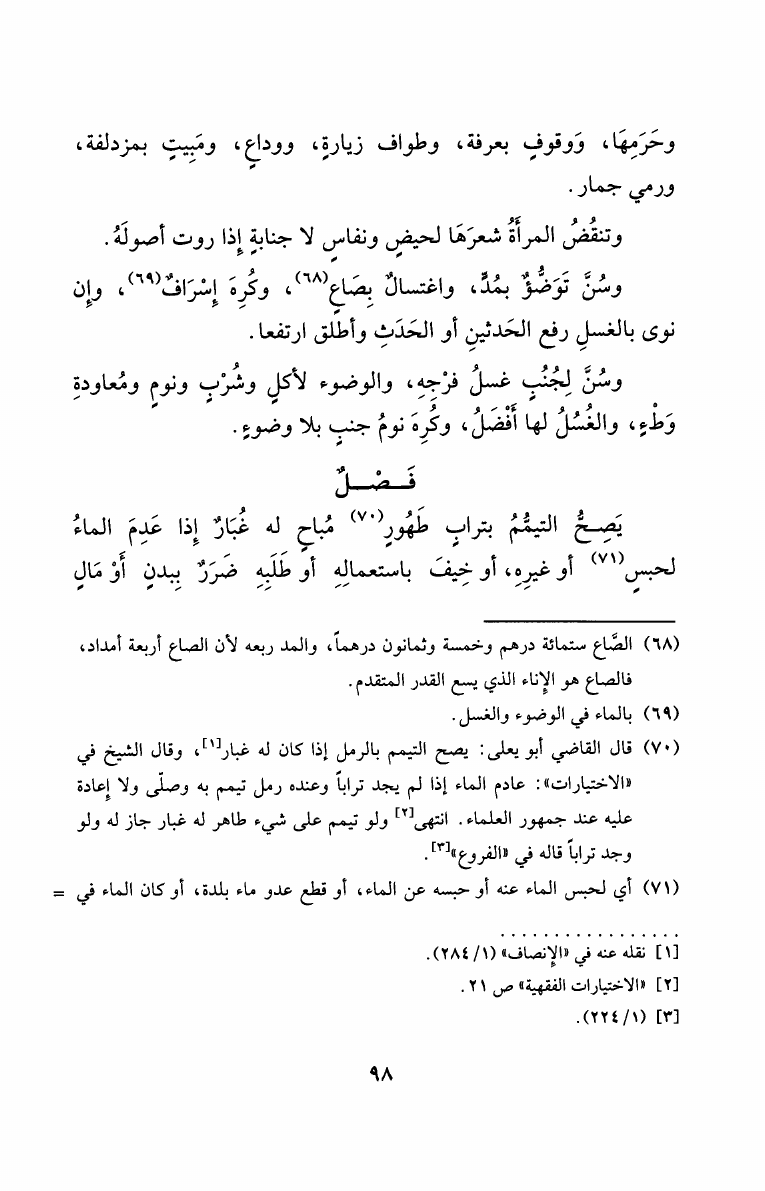 وحَرَمِهَا، وَوقوفٍ بعرفة، وطواف زيارةٍ، ووداعٍ، ومَبِيتٍ بمزدلفة،
ورمي جمار.
وتنقُضُ المرأةُ شعرَهَا لحيضٍ ونفاسٍ لا جنابةٍ إذا روت أصولَهُ.
وسُنَّ تَوَضُّؤٌ بمُدٍّ، واغتسالٌ بِصَاعٍ(٦٨)، وكُرِهَ إسْرَافٌ(٦٩)، وإن
نوى بالغسلِ رفع الحَدثينِ أو الحَدَثِ وأطلق ارتفعا.
وسُنَّ لِجُنُبٍ غسلُ فرْجِهِ، والوضوء لأكلٍ وشُرْبٍ ونومٍ ومُعاودةِ
وَطْءٍ، والغُسُلُ لها أَفْضَلُ، وكُرِهَ نومُ جنبٍ بلا وضوءٍ.
فَـصْـلٌ
يَصِحُّ التيمُّمُ بترابٍ طَهُورٍ(٧٠) مُباحٍ له غُبَارٌ إذا عَدِمَ الماءُ
لحبسٍ(٧١) أو غيرِهِ، أو خِيفَ باستعمالِهِ أو طَلَبِهِ ضَرَرٌ بِبدنٍ أوْ مَالٍ
(٦٨) الصَّاع ستمائة درهم وخمسة وثمانون درهماً، والمد ربعه لأن الصاع أربعة أمداد،
فالصاع هو الإناء الذي يسع القدر المتقدم.
(٦٩) بالماء في الوضوء والغسل.
(٧٠) قال القاضي أبو يعلى: يصح التيمم بالرمل إذا كان له غبار[١]، وقال الشيخ في
«الاختيارات»: عادم الماء إذا لم يجد تراباً وعنده رمل تيمم به وصلّى ولا إعادة
عليه عند جمهور العلماء. انتهى[٢] ولو تيمم على شيء طاهر له غبار جاز له ولو
وجد تراباً قاله في «الفروع»[٣].
(٧١) أي لحبس الماء عنه أو حبسه عن الماء، أو قطع عدو ماء بلدة، أو كان الماء في =
[١] نقله عنه في «الإنصاف» (١/ ٢٨٤).
[٢] «الاختيارات الفقهية» ص ٢١.
[٣] (١/ ٢٢٤).
٩٨